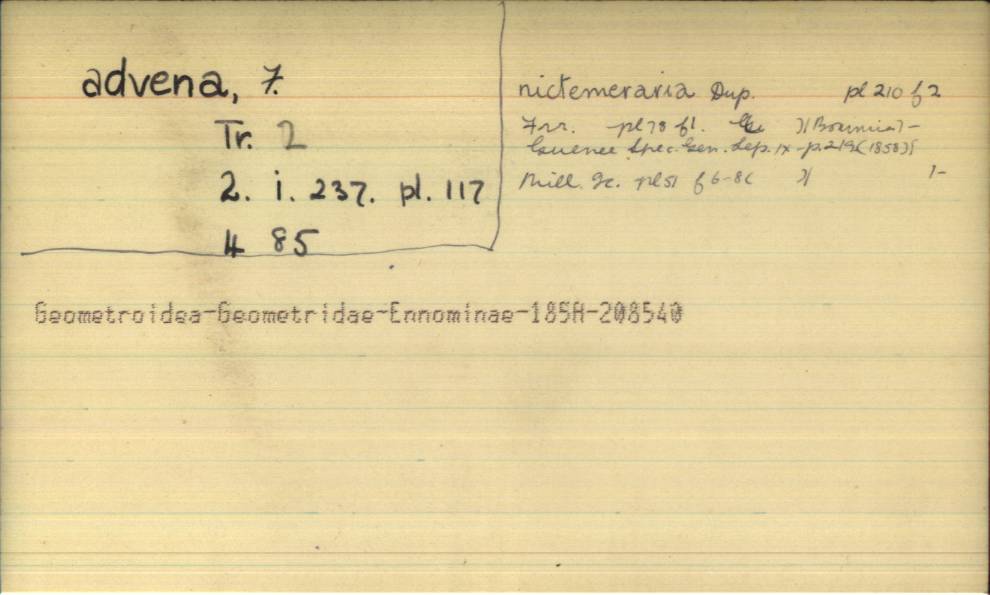 advena, 7.
Tr. 2
2. i. 237. pl. 117
4 85
nictemeraria Dup. pl 210 f 2
Frr. pl 78 f 1. )( Boarmia )-
Guenee Spec. Gen. Lep. IX - p. 219 (1858)
Mill. Ic. pl 51 f 6-8 )( 1-
Geometroidea-Geometridae-Ennominae-185A-208540